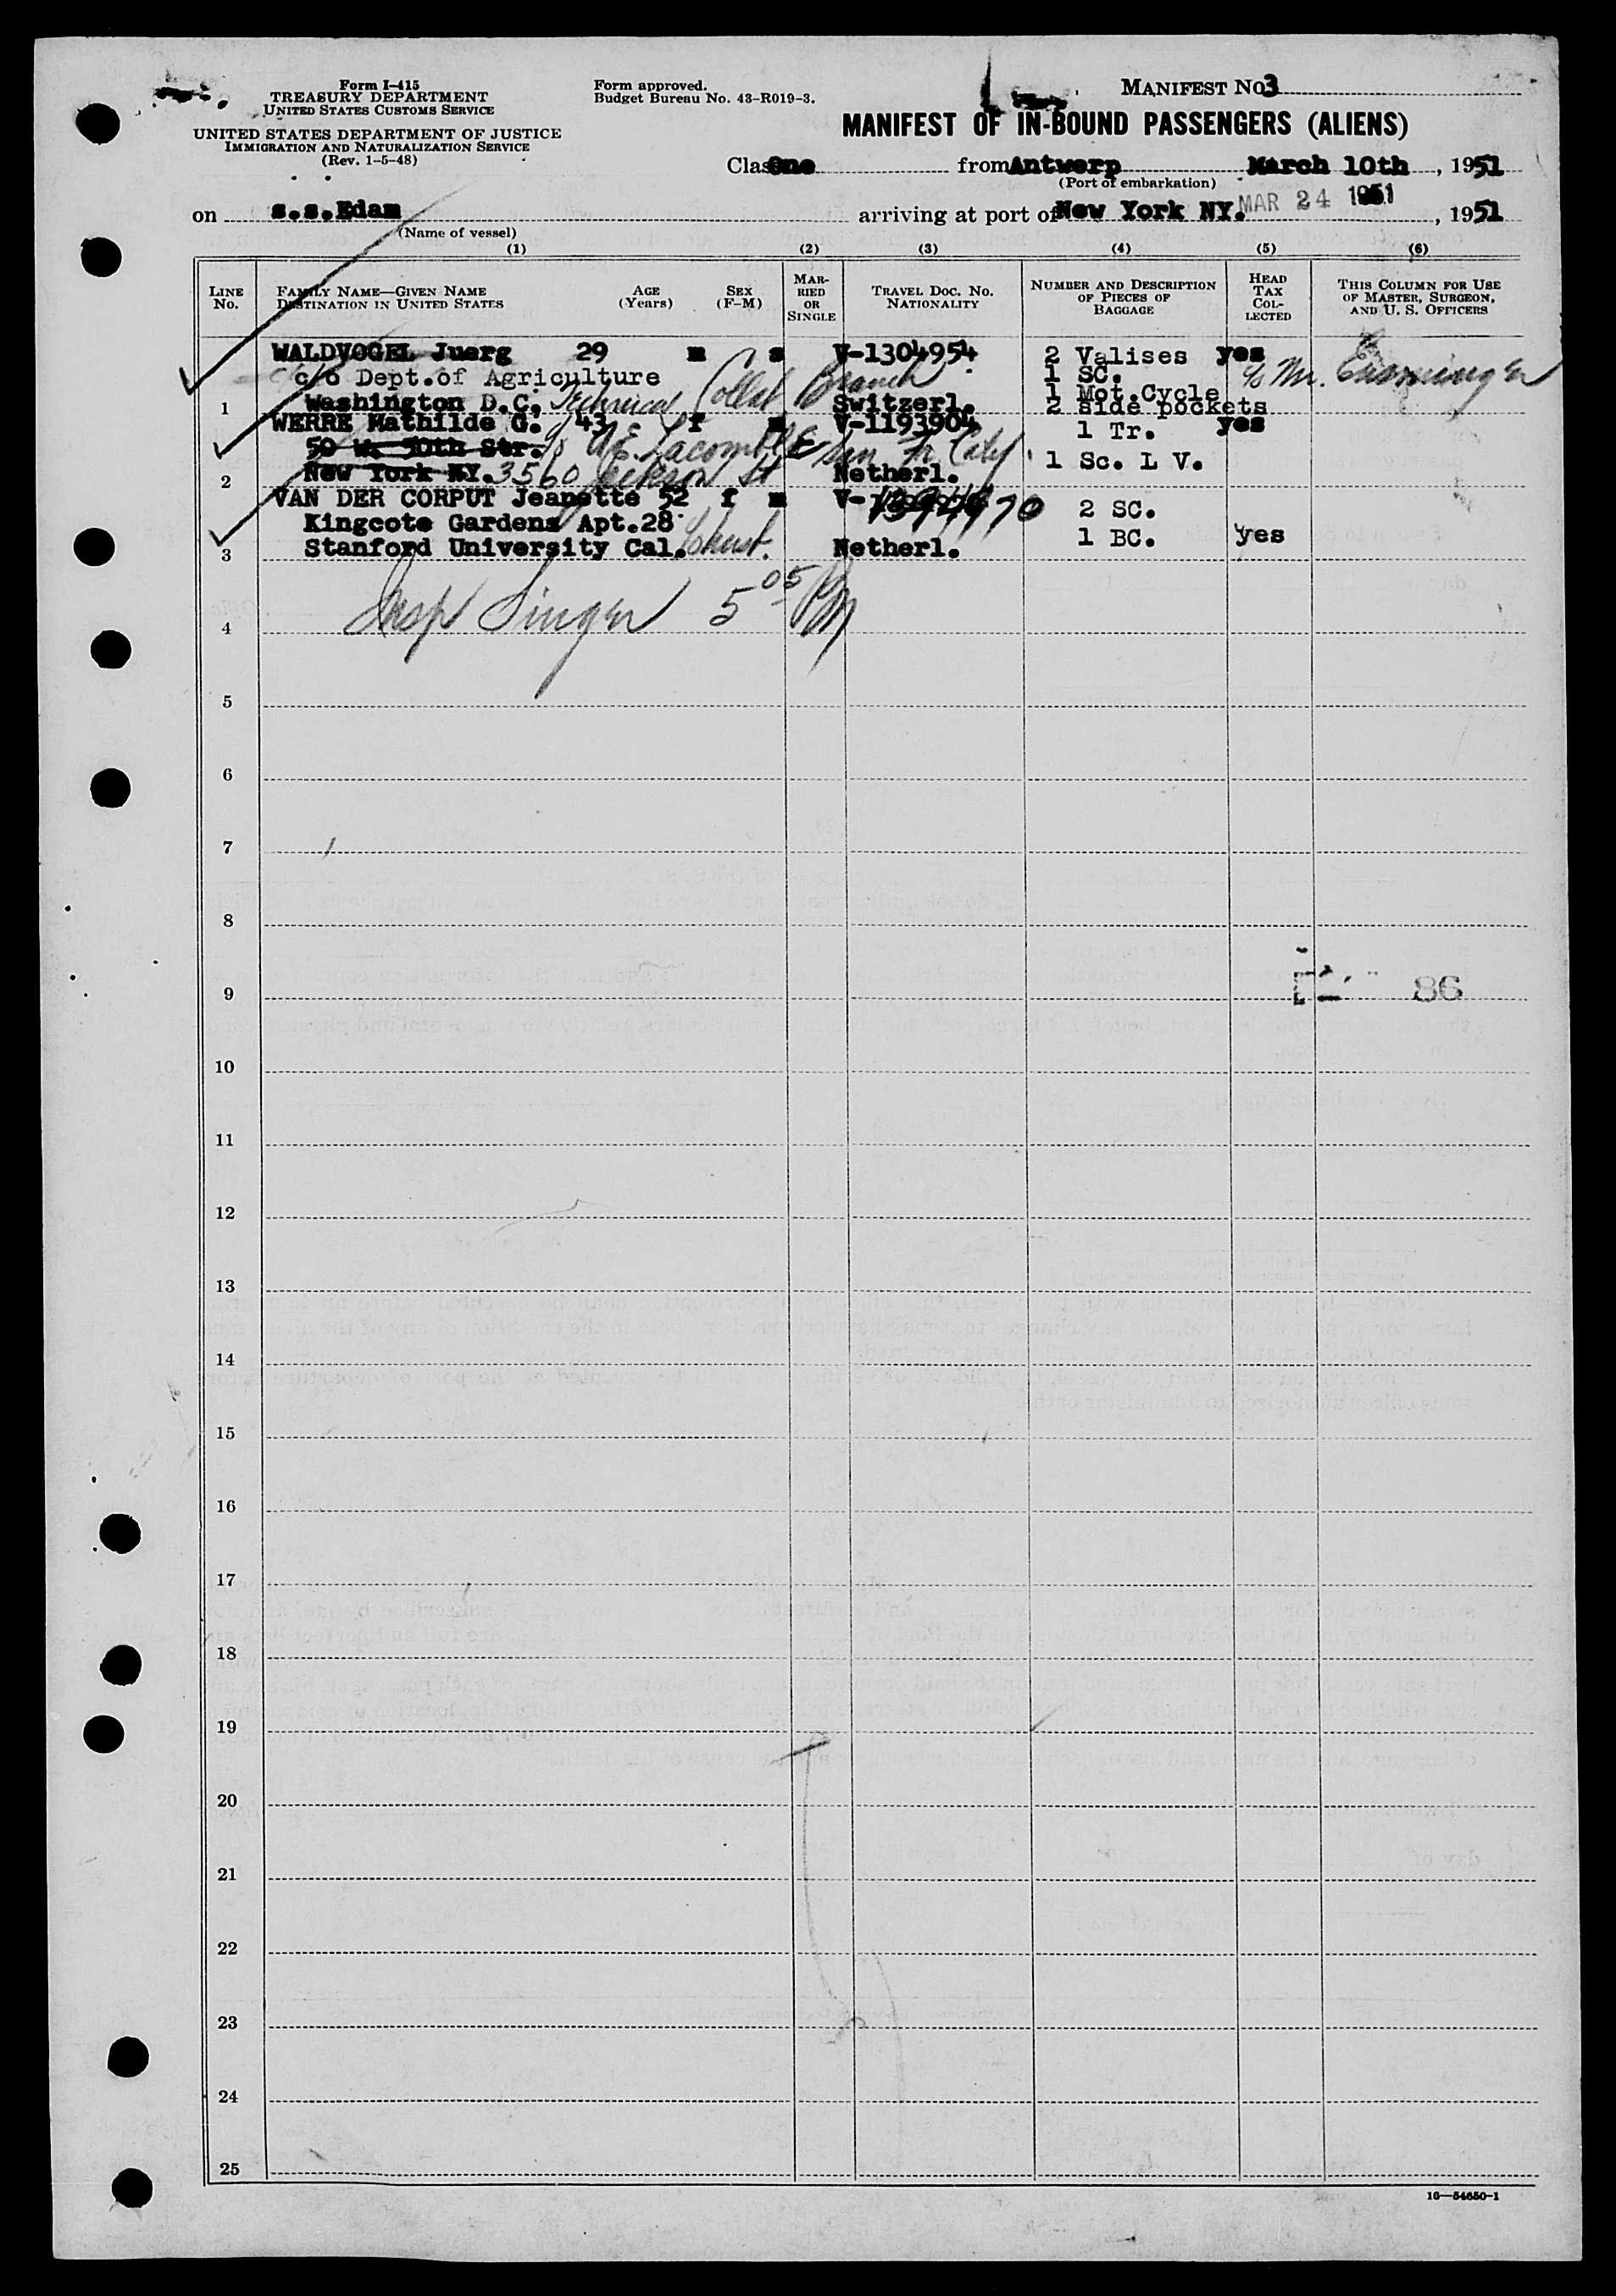 Form I-415
TREASURY DEPARTMENT
UNITED STATES CUSTOMS SERVICE
UNITED STATES DEPARTMENT OF JUSTICE
IMMIGRATION AND NATURALIZATION SERVICE
(Rev. 1-5-48)
Form approved.
Budget Bureau No. 43-R019-3.
MANIFEST NO 3
MANIFEST OF IN-BOUND PASSENGERS (ALIENS)
Class One from Antwerp March 10th, 1951
(Port of embarkation)
on s.s.Edam arriving at port of New York NY. MAR 24 1951, 1951
(Name of vessel)
(1) (2) (3) (4) (5) (6)
LINE NO. FAMILY NAME—GIVEN NAME DESTINATION IN UNITED STATES AGE (Years) SEX (F-M) MARRIED OR SINGLE TRAVEL DOC. NO. NATIONALITY NUMBER AND DESCRIPTION OF PIECES OF BAGGAGE HEAD TAX COLLECTED THIS COLUMN FOR USE OF MASTER, SURGEON, AND U. S. OFFICERS
WALDVOGEL Juerg 29 m s V-1304954 2 Valises yes
c/o Dept.of Agriculture 1 SC. c/o Mr.
1 Washington D.C. Technical Collab Branch Switzerl. 1 Mot.Cycle
2 side pockets
WERRE Mathilde G. 43 f m V-1193904 1 Tr. yes
50 W. 50th Str. San Fr Calif.
2 New York NY. 3560 Jackson St Netherl. 1 Sc. L V.
VAN DER CORPUT Jeanette 52 f m V- 2 SC.
Kingcote Gardens Apt.28
3 Stanford University Cal. Netherl. 1 BC. yes
4 Insp Singer 5 05 PM
5
6
7
8
9 86
10
11
12
13
14
15
16
17
18
19
20
21
22
23
24
25
16—54650-1